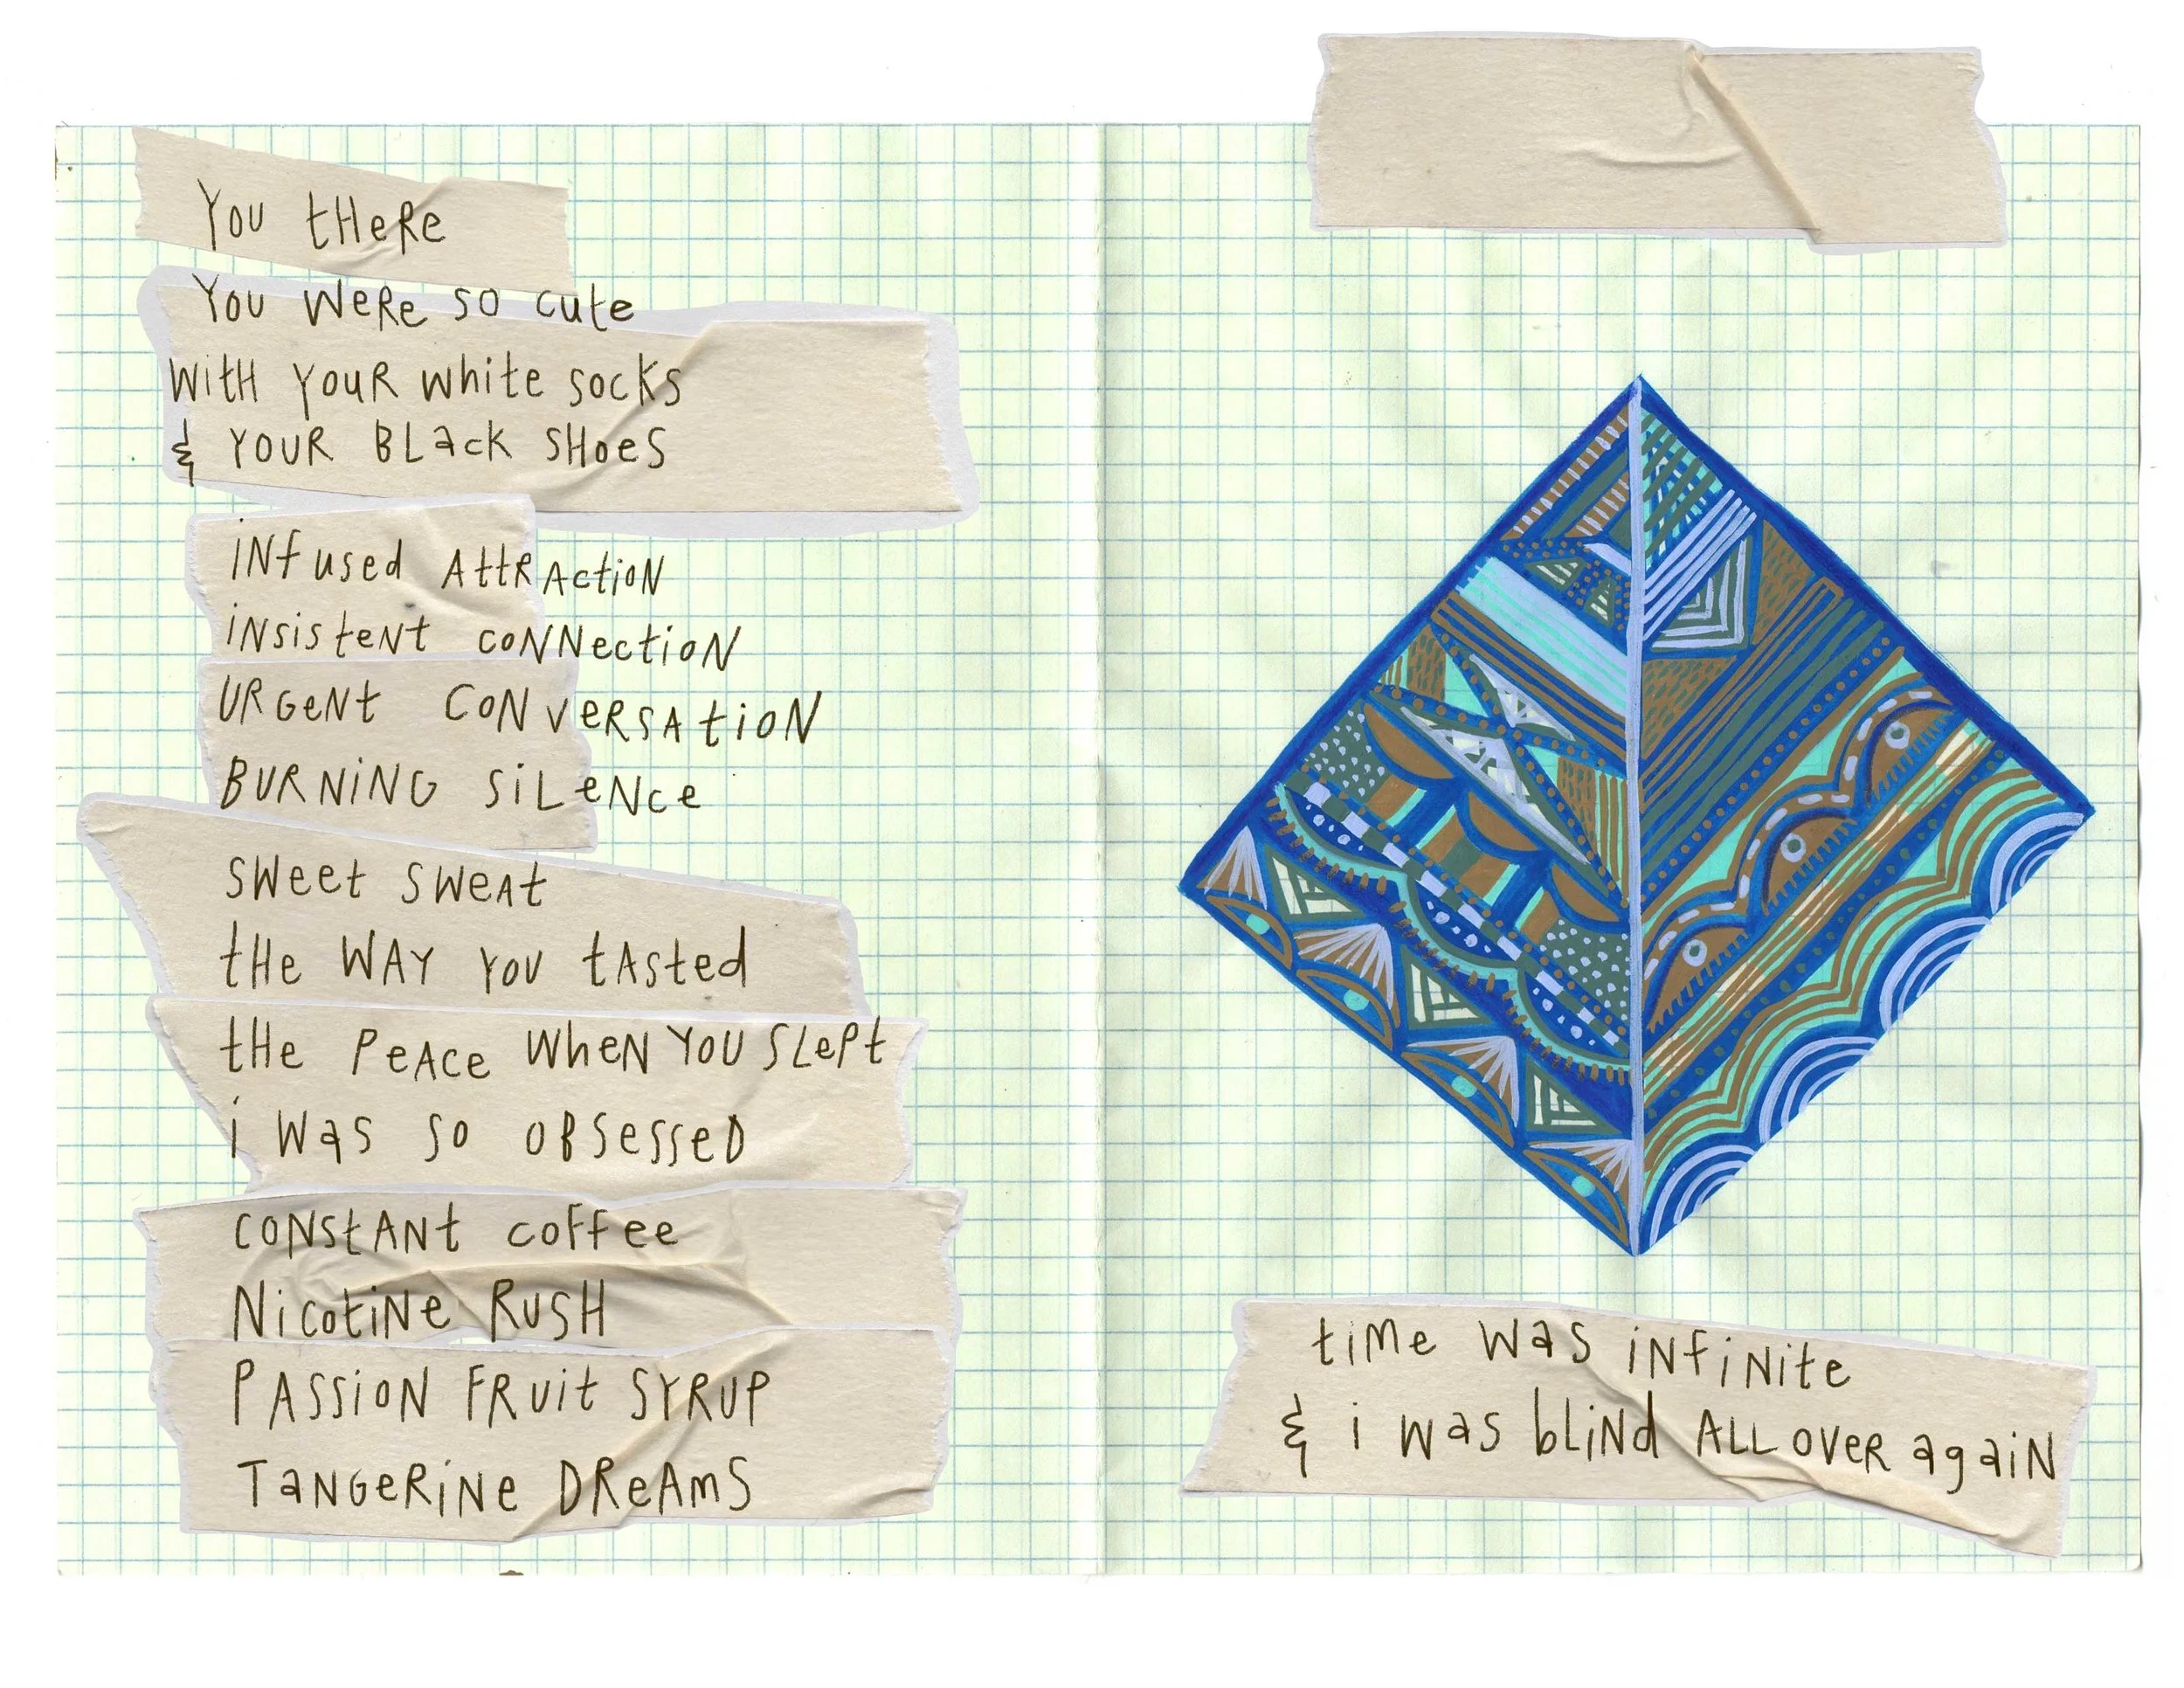 You tHeRe
You weRe so cute
with youR white socks
& YOUR BLack SHoes
iNfused AttRActioN
iNsisteNt coNNectioN
URGeNt CoNveRSAtioN
BURNiNG siLeNce
sweet sweAt
tHe WAY YoU tAsted
tHe PeAce wheN YoU SLePt
i was so oBsesseD
coNstANt coffee
NicotiNe RUSH
PASSioN FRuit SYRUP
TaNGeRiNe DReAmS
time was iNfiNite
& i was bLiNd ALL oveR agaiN